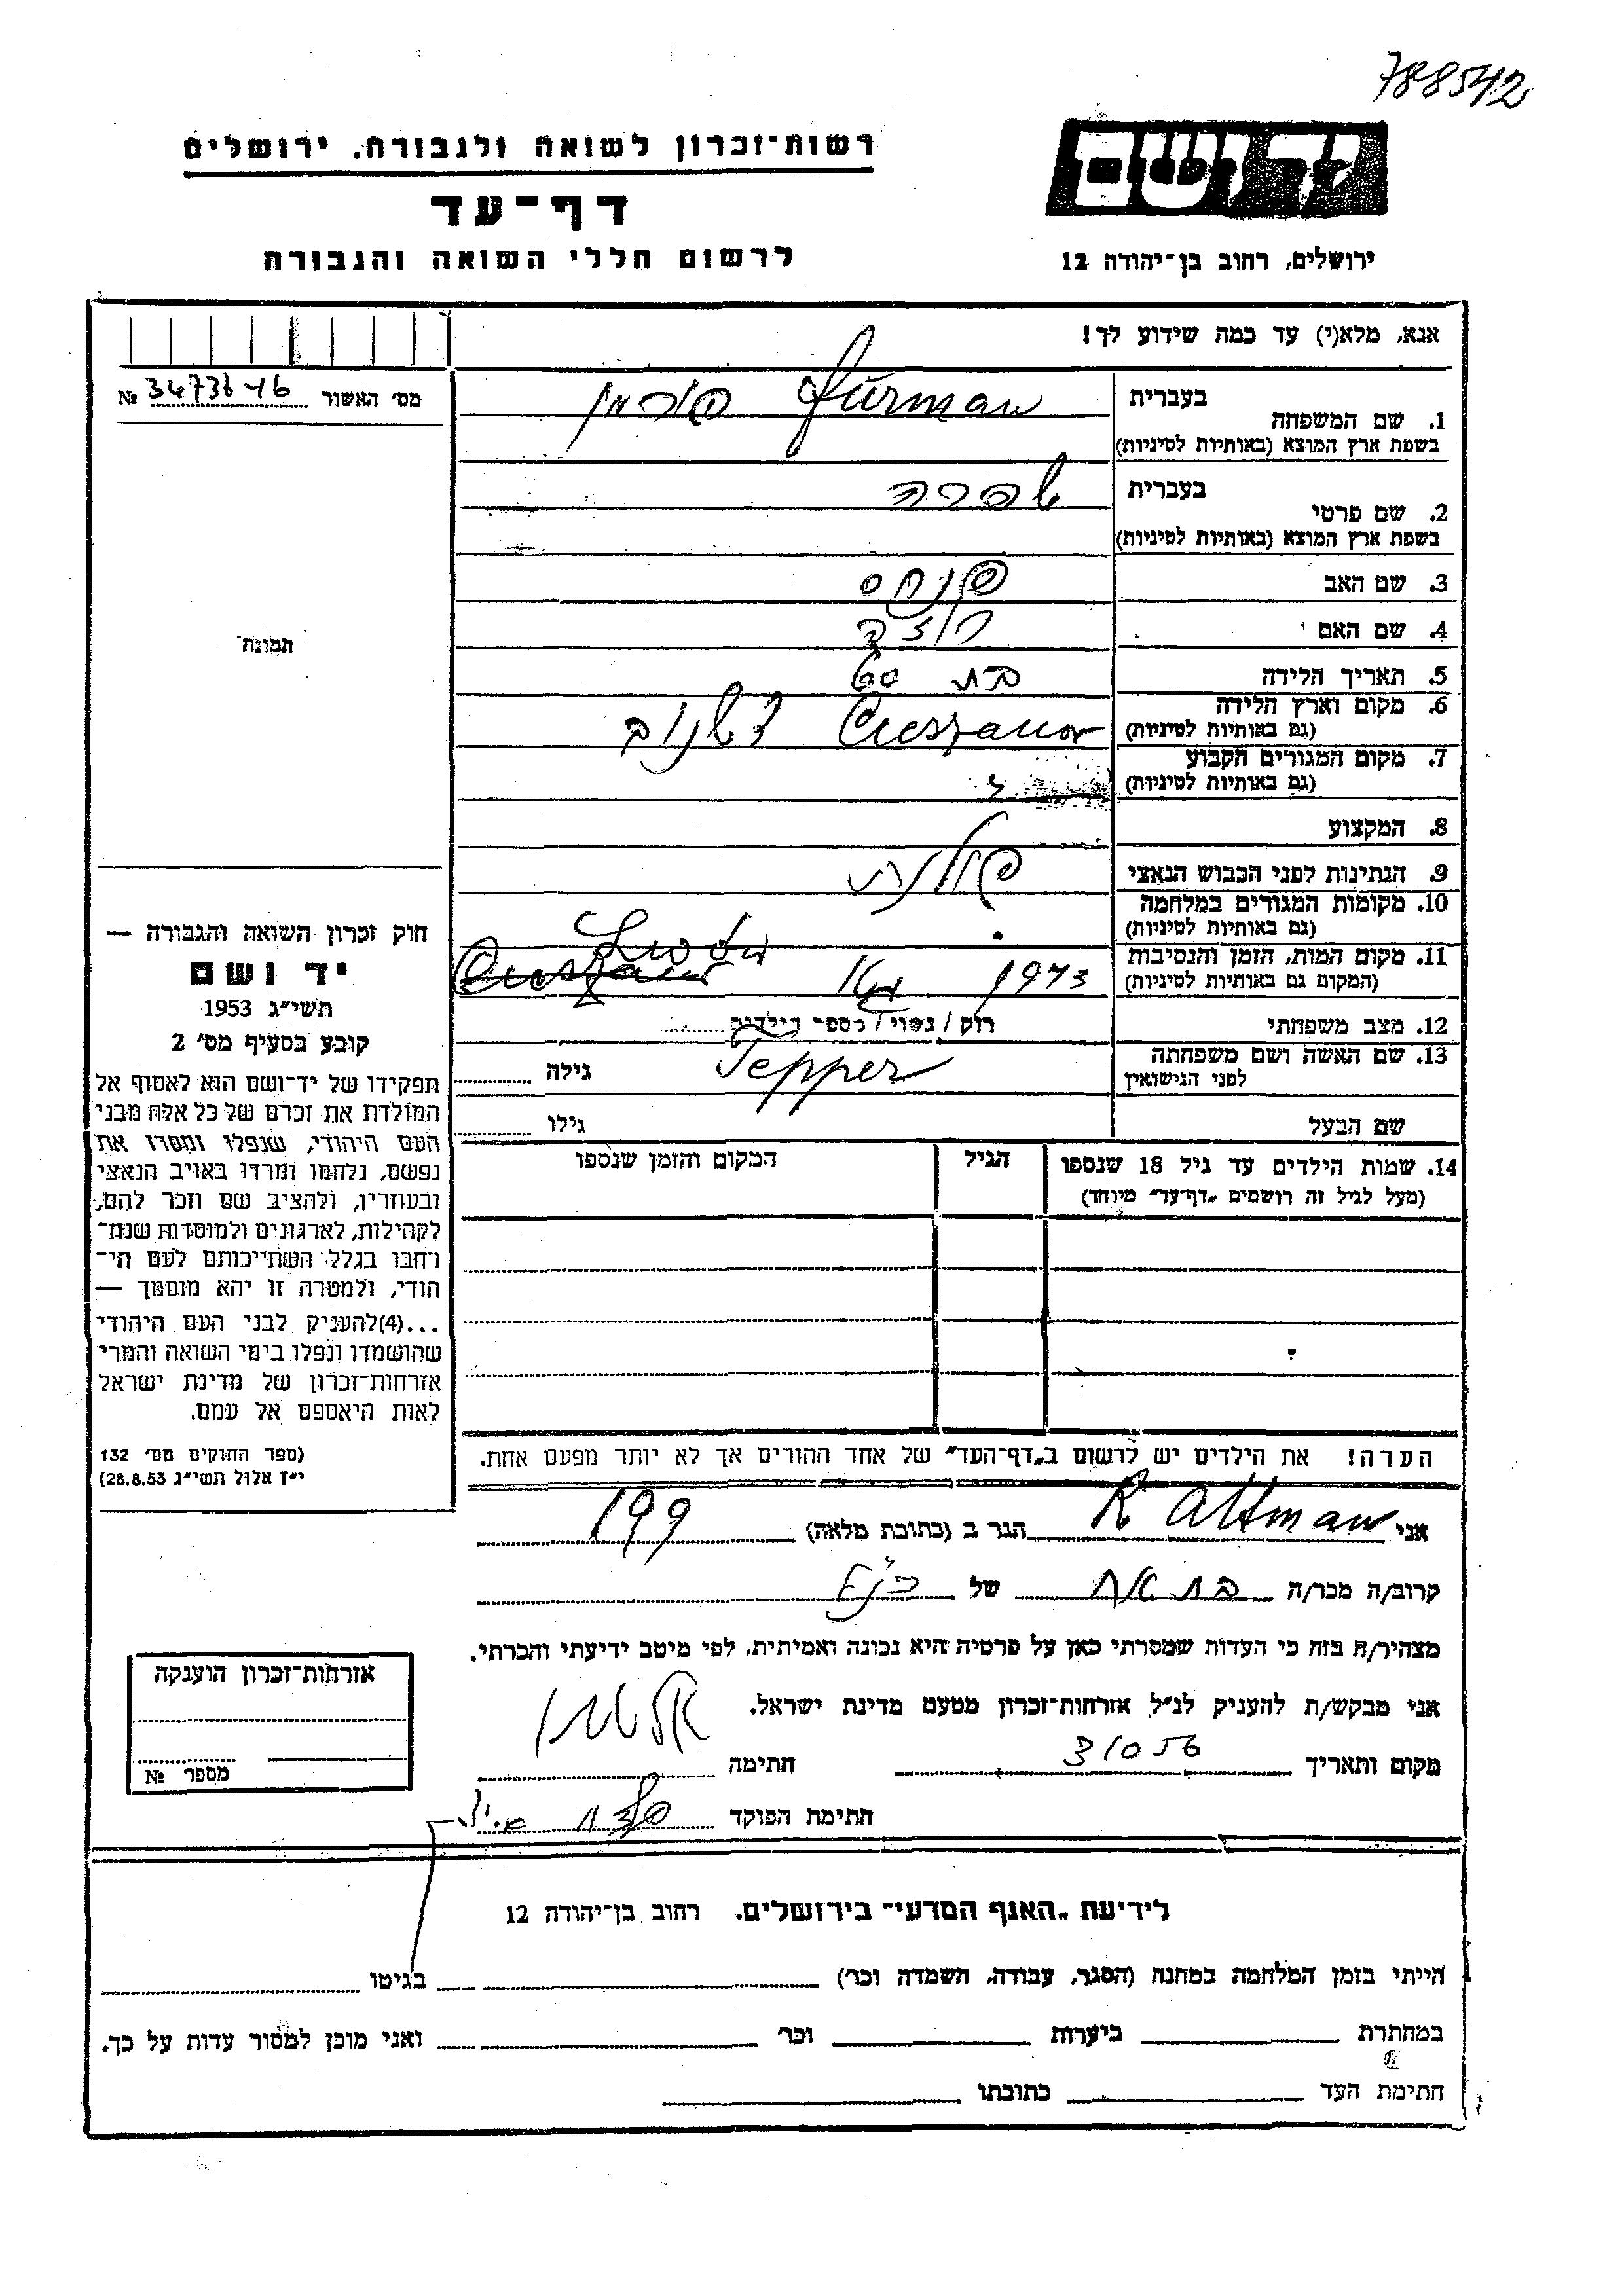 788542
יד ושם
רשות-זכרון לשואה ולגבורה, ירושלים
דף-עד
לרשום חללי השואה והגבורה
ירושלים, רחוב בן-יהודה 12
אנא, מלא(י) עד כמה שידוע לך!
מס׳ האשור №
בעברית
1. שם המשפחה
בשפת ארץ המוצא (באותיות לטיניות)
Furman פורמן
בעברית
2. שם פרטי
בשפת ארץ המוצא (באותיות לטיניות)
שפרה
3. שם האב פנחס
4. שם האם רוזה
5. תאריך הלידה בת 60
6. מקום וארץ הלידה
(גם באותיות לטיניות)
Cieszanow צשנוב
7. מקום המגורים הקבוע
(גם באותיות לטיניות)
8. המקצוע
9. הנתינות לפני הכבוש הנאצי פולנית
10. מקומות המגורים במלחמה
(גם באותיות לטיניות)
11. מקום המות, הזמן והנסיבות
(המקום גם באותיות לטיניות)
1943 Lwów
12. מצב משפחתי רוק / נשוי / מספר הילדים
13. שם האשה ושם משפחתה
לפני הנישואין
Tepper גילה
שם הבעל גילו
14. שמות הילדים עד גיל 18 שנספו
(מעל לגיל זה רושמים „דף-עד״ מיוחד)
הגיל
המקום והזמן שנספו
תמונה
חוק זכרון השואה והגבורה —
יד ושם
תשי״ג 1953
קובע בסעיף מס׳ 2
תפקידו של יד-ושם הוא לאסוף אל
המולדת את זכרם של כל אלה מבני
העם היהודי, שנפלו ומסרו את
נפשם, נלחמו ומרדו באויב הנאצי
ובעוזריו, ולהציב שם וזכר להם,
לקהילות, לארגונים ולמוסדות שנח־
רבו בגלל השתייכותם לעם הי־
הודי, ולמטרה זו יהא מוסמך —
...(4)להעניק לבני העם היהודי
שהושמדו ונפלו בימי השואה והמרי
אזרחות-זכרון של מדינת ישראל
לאות היאספם אל עמם.
(ספר החוקים מס׳ 132
י״ז אלול תשי״ג 28.8.53)
הערה! את הילדים יש לרשום ב„דף-העד״ של אחד ההורים אך לא יותר מפעם אחת.
אני R Altman הגר ב (כתובת מלאה) 199
קרוב/ה מכר/ה בת אח של
מצהיר/ה בזה כי העדות שמסרתי כאן על פרטיה היא נכונה ואמיתית, לפי מיטב ידיעתי והכרתי.
אני מבקש/ת להעניק לנ״ל אזרחות-זכרון מטעם מדינת ישראל.
מקום ותאריך חתימה
חתימת הפוקד
אזרחות-זכרון הוענקה
מספר №
לידיעת „האגף המדעי״ בירושלים. רחוב בן-יהודה 12
הייתי בזמן המלחמה במחנה (הסגר, עבודה, השמדה וכר׳) בגיטו
במחתרת ביערות וכר׳ ואני מוכן למסור עדות על כך.
חתימת העד כתובתו